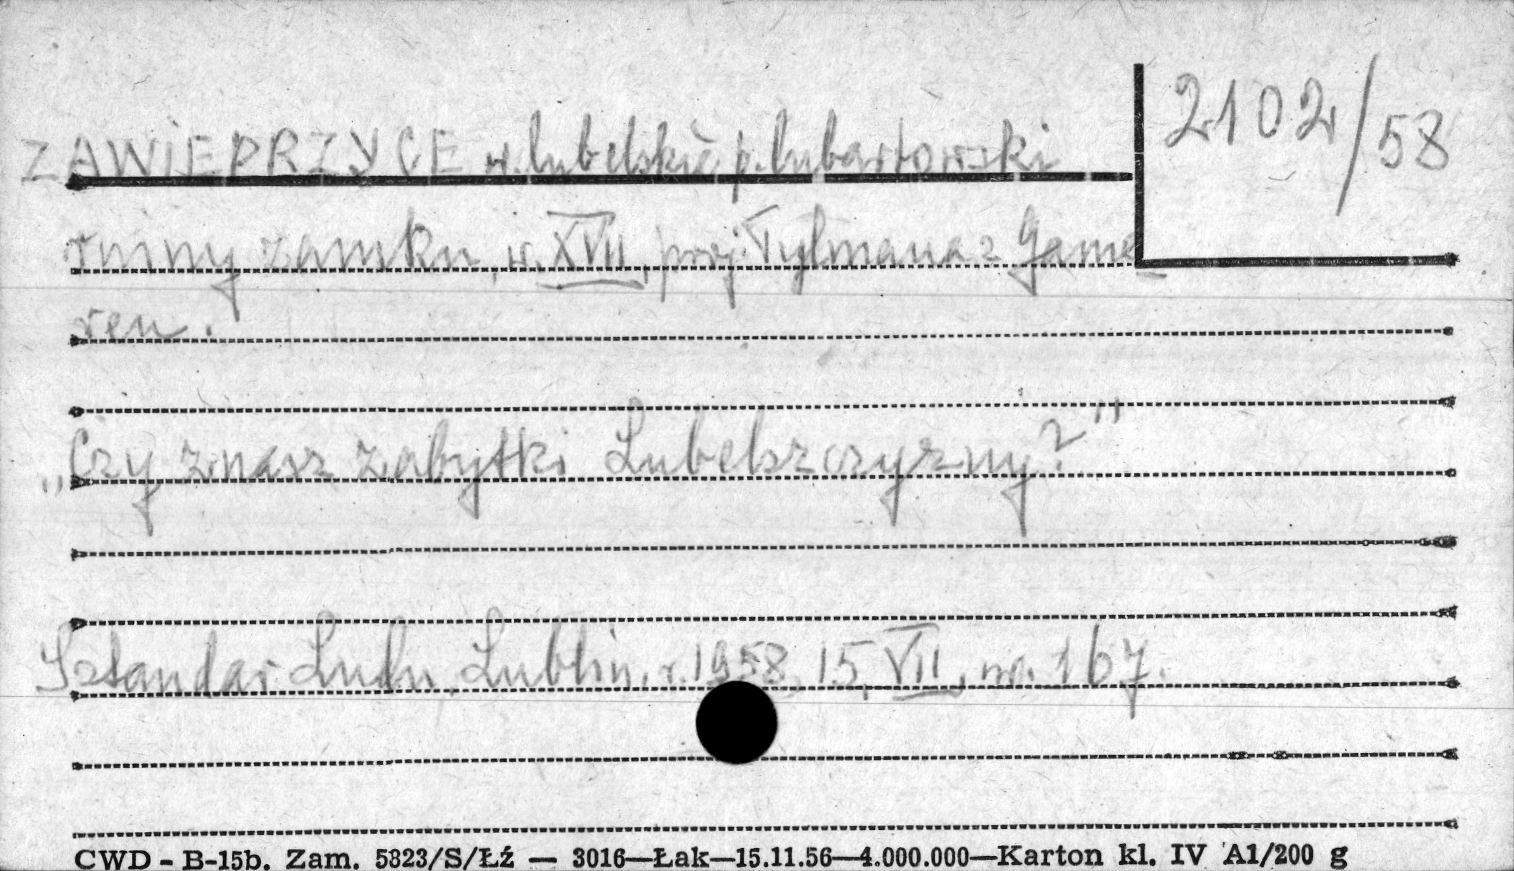 2102/58
ZAWIEPRZYCE w. lubelskie p. lubartowski
ruiny zamku, w. XVII, proj. Tylmana z Game
ren.
„Czy znasz zabytki Lubelszczyzny?"
Sztandar Ludu, Lublin, r. 1958, 15, VII, nr. 167.
CWD - B-15b. Zam. 5823/S/Łź — 3016—Łak—15.11.56—4.000.000—Karton kl. IV A1/200 g